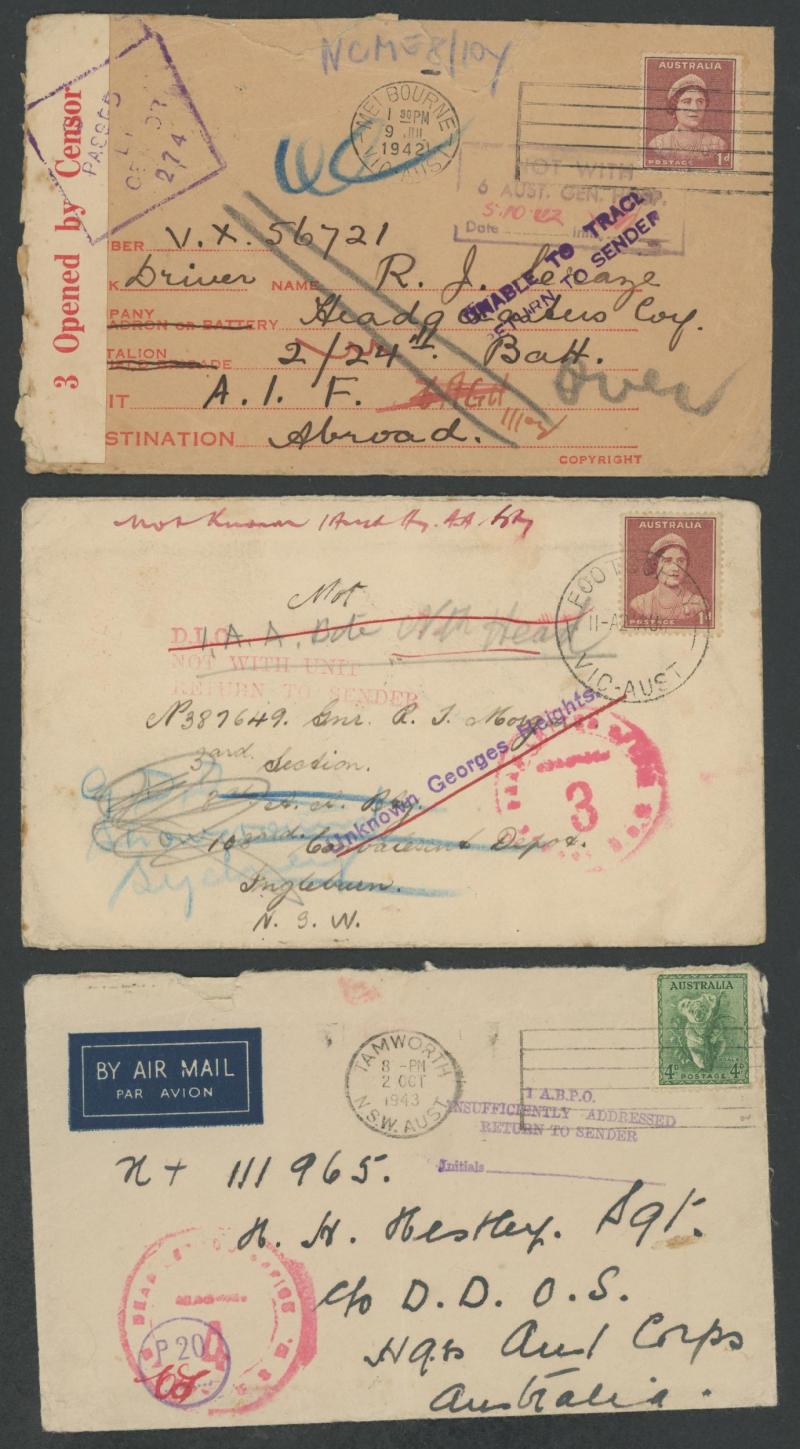 NCME 8/10y
PASSED
274
3 Opened by Censor
MELBOURNE
1 30PM
9 JUL
1942
VIC. AUST
AUSTRALIA
POSTAGE 1d
NOT WITH
6 AUST. GEN. HOSP.
5.10
Date
UNABLE TO TRACE
RETURN TO SENDER
BER V.X. 56721
K Driver NAME R. J.
PANY
ADRON OR BATTERY Headquarters Coy.
TALION
2/24th Batt.
IT A. I. F.
Over
STINATION Abroad.
COPYRIGHT
Not Known 1 Aust Hy. AA Bty
AUSTRALIA
POSTAGE 1d
FOOTSCRAY
VIC-AUST
Not
1, A. A. Bde Nth Head
D.L.O.
NOT WITH UNIT
RETURN TO SENDER
N387649. Gnr. R. J.
3rd Section.
A. A. Bty.
Unknown Georges Heights.
3
108 Convalescent Depot.
Sydney
Ingleburn.
N. S. W.
AUSTRALIA
4D POSTAGE 4D
BY AIR MAIL
PAR AVION
TAMWORTH
8 -PM
2 OCT
1943
N.S.W. AUST
1 A.B.P.O.
INSUFFICIENTLY ADDRESSED
RETURN TO SENDER
Initials
NX 111965.
H. H. Hestley. Sgt.
DEAD LETTER OFFICE
P 20
c/o D. D. O. S.
Hqrs Aust Corps
Australia.